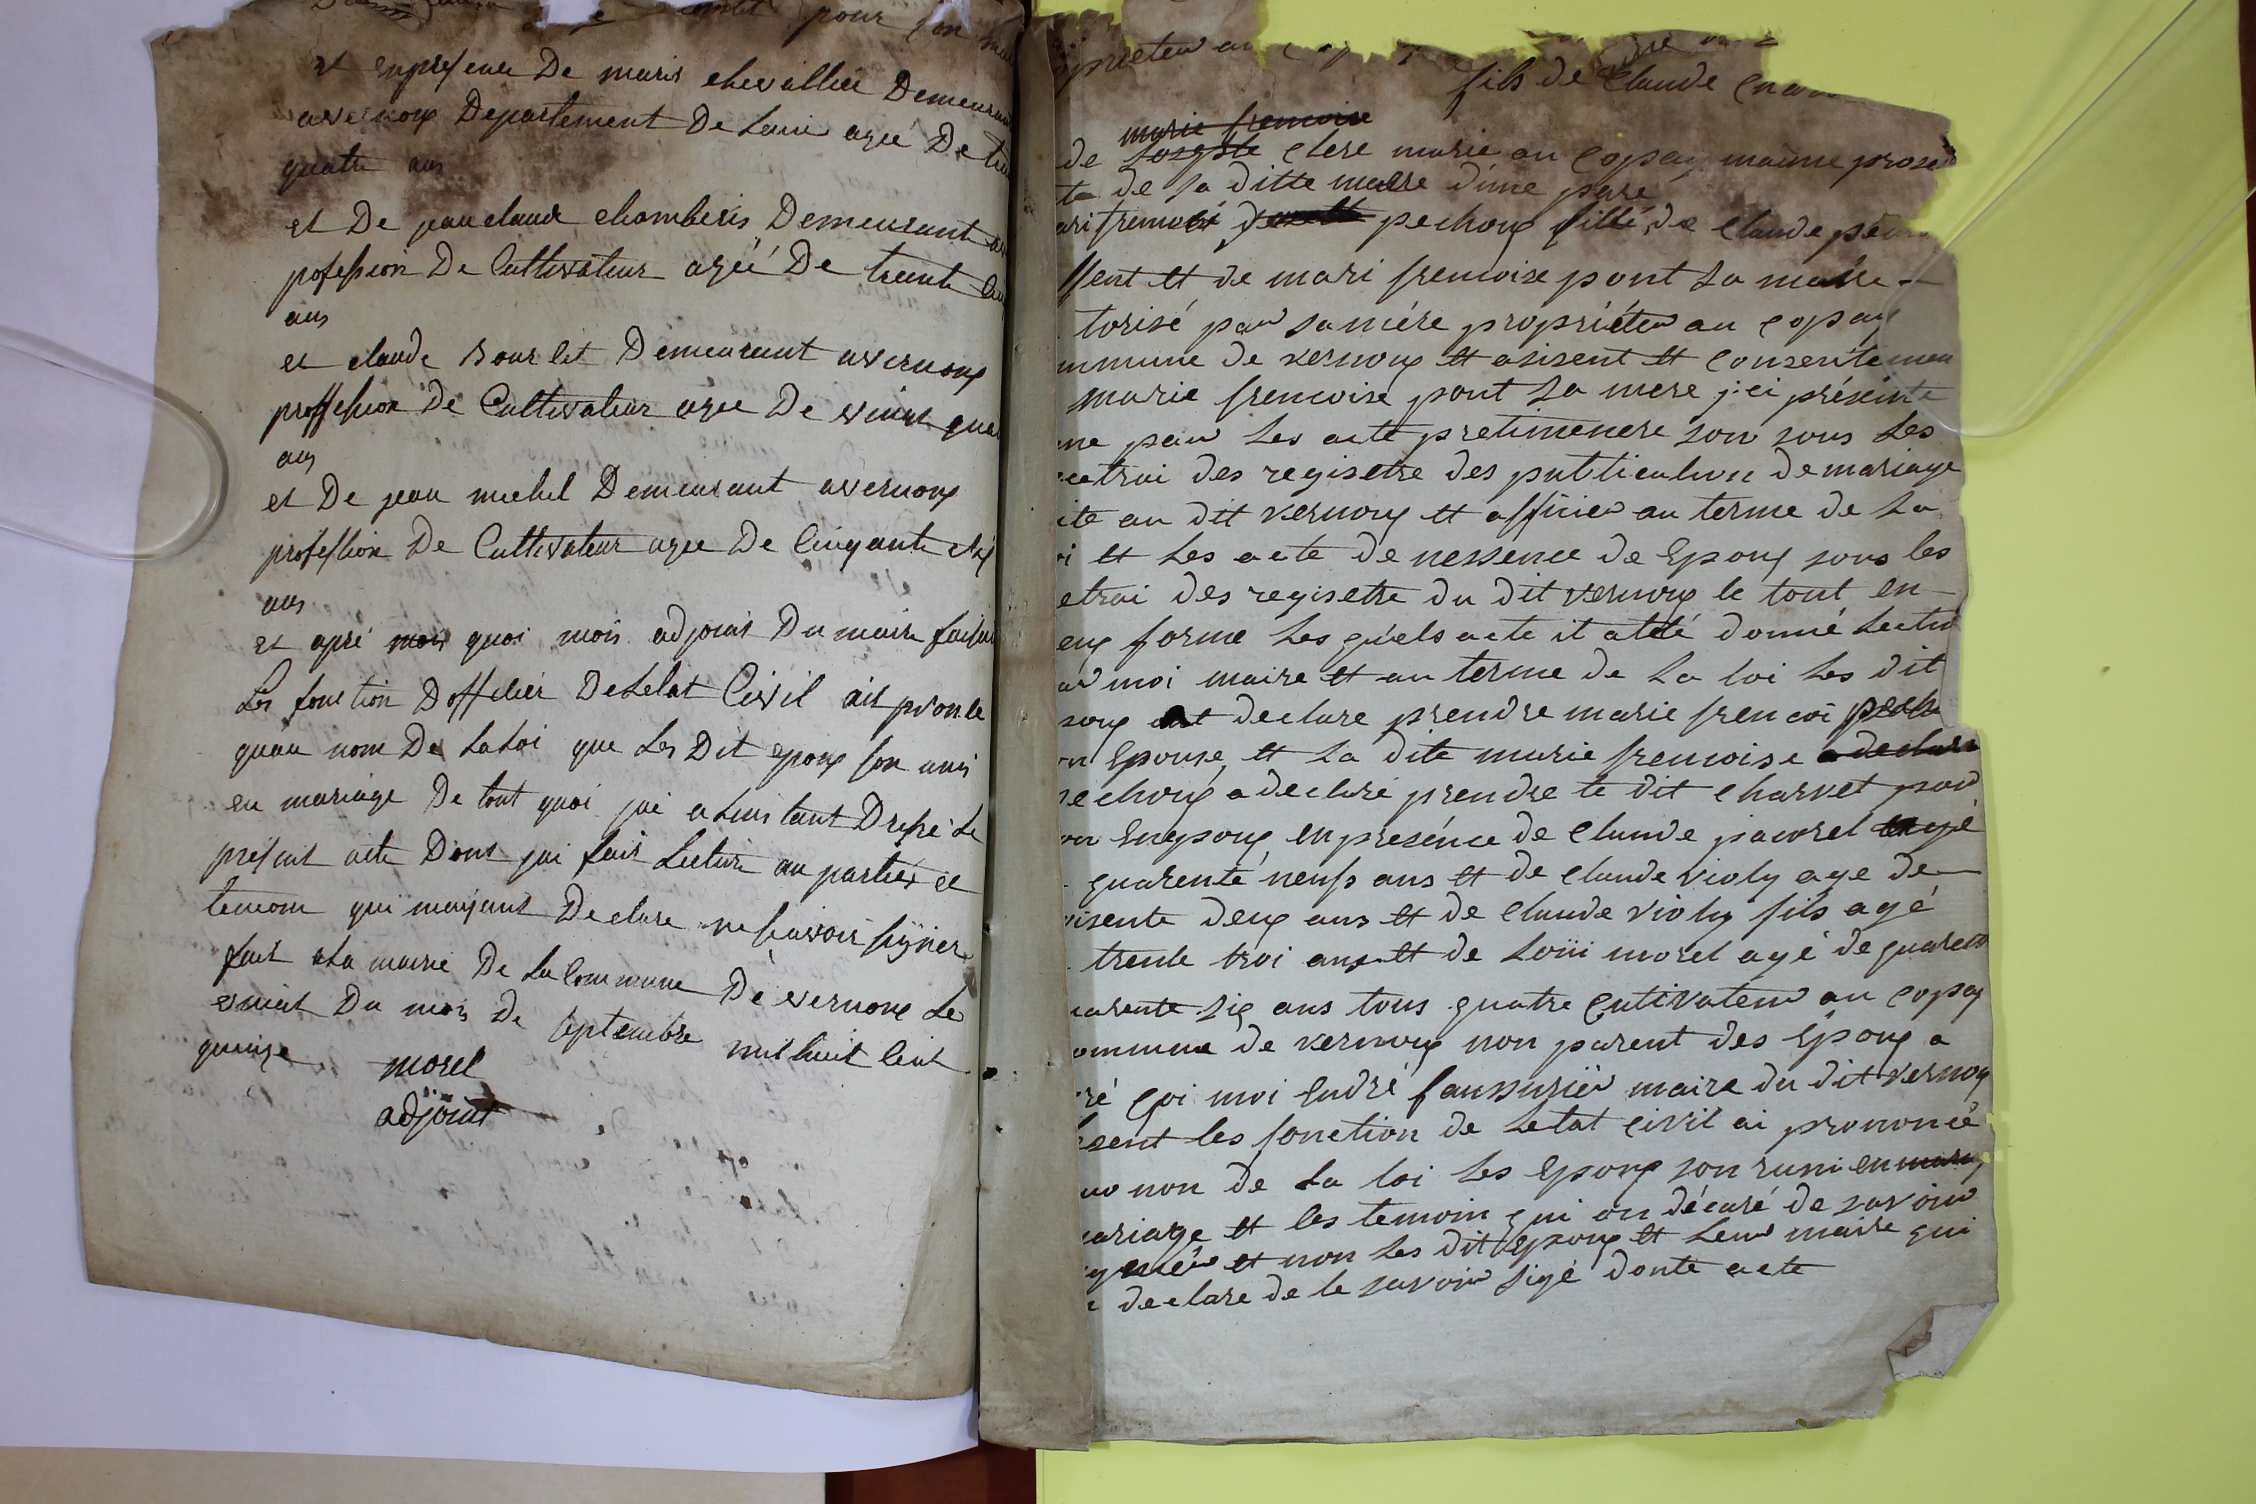 pour son
et enpresence De maris chevallier Demeurant
avernoux Departement De Lain agée De
quatre ans
et De jean claude chamberis Demeurant
pofession De Cultivateur ageé De trente
ans
et claude Bourlet Demeurant avernoux
proffession De Cultivateur agee De vaint
ans
et De jean michel Demeurant avernoux
profession De Cultivateur agee De Cinquante six
ans
et apré mois quoi mois adjoint Du maire
Les fonction Dofficier DeLetat Civil ait prononce
quau nom De La Loi que Les Dit epoux son unis
en mariage De tout quoi jai aLinstant Dressé Le
present acte Dont jai fait Lecture au parties et
temoin qui mayant Declare ne scavoir signer
fait aLa mairie De La Commune De vernoux Le
vaint Du mois De septembre mil huit Cent
quinze
morel
adjoint
fils de Claude
marie frencoise
de Josepte clere marie au Copay maime
te de sa ditte maere dune pare
frencoi pechoux fillé de Claude
ssent et de mari frencoise pont sa maere
torisé par samére propriéter au Copay
mmune de vernoux et asisent et Consentemen
marie frencoise pont sa mere jci présente
ne par les acte pretimenere son sous les
trai des regisetre des putticution de mariage
ite au dit vernoux et afficier au terme de La
i et Les acte de nessence de Epoux sous les
etrai des regisetre du dit vernoux le tout en
eux forme Les quels acte it a tété donné Lectur
ar moi maire et au terme de La loi Les dit
poux ont declare prendre marie frencoi
on Epouse et La dite marie frencoise a declare
pechoux a declaré prendre te dit Charvet pour
on Enepoux en presénce de Claude pauvrel
quarenté neufs ans et de Claude violy age de
isente deux ans et de Claude violy fils agé
trente troi ans et de Loüi morel agé de quarent
uarente six ans tous quatre Cutivateur au Copay
ommune de vernoux non parent des Époux a
ré Qoi moi Endré faussurier maire du dit vernoux
esent les fonction de Letat Civil ai prononcé
au non de La loi Les Epoux son runi en
ariage et les temoin qui on décaré de savoir
et non Les dit Epoux et Leur maire qui
declare de le savoir sigé donte acte